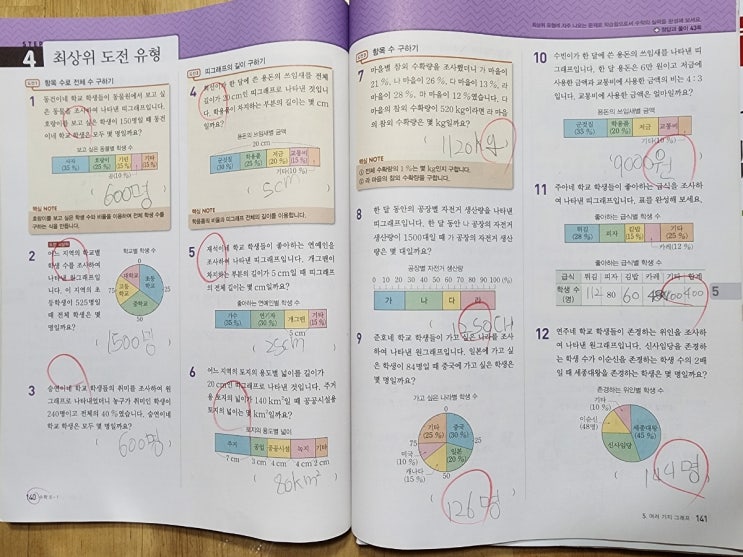 STEP
4 최상위 도전 유형
항목 수로 전체 수 구하기
1 동건이네 학교 학생들이 동물원에서 보고 싶
은 동물을 조사하여 나타낸 띠그래프입니다.
호랑이를 보고 싶은 학생이 150명일 때 동건
이네 학교 학생은 모두 몇 명일까요?
보고 싶은 동물별 학생 수
사자 (35 %) 호랑이 (25 %) 기린 (15 %) 기타 (15 %)
(10 %)
( 600명 )
핵심 NOTE
호랑이를 보고 싶은 학생 수와 비율을 이용하여 전체 학생 수를
구하는 식을 만듭니다.
2 어느 지역의 학교별
학생 수를 조사하여
나타낸 원그래프입
니다. 이 지역의 초
등학생이 525명일
때 전체 학생은 몇
명일까요?
학교별 학생 수
0
대학교
초등
학교
75 고등
학교
25
중학교
50
( 1500명 )
3 승연이네 학교 학생들의 취미를 조사하여 원
그래프로 나타내었더니 농구가 취미인 학생이
240명이고 전체의 40 %였습니다. 승연이네
학교 학생은 모두 몇 명일까요?
( 600명 )
140 수학 6-1
띠그래프의 길이 구하기
4
용돈의 쓰임새를 전체
길이가 20 cm인 띠그래프로 나타낸 것입니
다. 학용품이 차지하는 부분의 길이는 몇 cm
일까요?
용돈의 쓰임새별 금액
20 cm
군것질 (30 %) 학용품 (25 %) 저금 (20 %) 교통비 (15 %)
기타(10 %)
( 5cm )
핵심 NOTE
학용품의 비율과 띠그래프 전체의 길이를 이용하여 구합니다.
5 재석이네 학교 학생들이 좋아하는 연예인을
조사하여 나타낸 띠그래프입니다. 개그맨이
차지하는 부분의 길이가 5 cm일 때 띠그래프
의 전체 길이는 몇 cm일까요?
좋아하는 연예인별 학생 수
가수 (35 %) 연기자 (30 %) 개그맨 기타 (15 %)
5 cm
( 25cm )
6 어느 지역의 토지의 용도별 넓이를 길이가
20 cm인 띠그래프로 나타낸 것입니다. 주거
용 토지의 넓이가 140 km²일 때 공공시설용
토지의 넓이는 몇 km²일까요?
토지의 용도별 넓이
주거 공업 공공시설 녹지 기타
7 cm 3 cm 4 cm 4 cm 2 cm
( 80km² )
최상위 유형에 자주 나오는 문제로 학습함으로써 수학의 실력을 완성해 보세요.
정답과 풀이 43쪽
항목 수 구하기
7 마을별 참외 수확량을 조사했더니 가 마을이
21 %, 나 마을이 26 %, 다 마을이 13 %, 라
마을이 28 %, 마 마을이 12 %였습니다. 다
마을의 참외 수확량이 520 kg이라면 라 마을
의 참외 수확량은 몇 kg일까요?
( 1120kg )
핵심 NOTE
① 전체 수확량의 1 %는 몇 kg인지 구합니다.
② 라 마을의 참외 수확량을 구합니다.
8 한 달 동안의 공장별 자전거 생산량을 나타낸
띠그래프입니다. 한 달 동안의 전체 자전거
생산량이 1500대일 때 가 공장의 자전거 생산
량은 몇 대일까요?
공장별 자전거 생산량
0 10 20 30 40 50 60 70 80 90 100(%)
가 나 다 라
9 준호네 학교 학생들이 가고 싶은 나라를 조사
하여 나타낸 원그래프입니다. 일본에 가고 싶
은 학생이 84명일 때 중국에 가고 싶은 학생은
몇 명일까요?
가고 싶은 나라별 학생 수
0
기타 (25 %)
중국 (30 %)
75 25
미국 (10 %)
일본 (20 %)
캐나다 (15 %)
50
( 126명 )
10 수빈이가 한 달에 쓴 용돈의 쓰임새를 나타낸 띠
그래프입니다. 한 달 용돈은 6만 원이고 저금에
사용한 금액과 교통비에 사용한 금액의 비는 4 : 3
입니다. 교통비에 사용한 금액은 얼마일까요?
용돈의 쓰임새별 금액
군것질 (35 %) 학용품 (20 %) 저금 교통비
기타(10 %)
( 9000원 )
11 주아네 학교 학생들이 좋아하는 급식을 조사하
여 나타낸 띠그래프입니다. 표를 완성해 보세요.
좋아하는 급식별 학생 수
튀김 (28 %) 피자 김밥 (15 %) 기타 (25 %)
카레(12 %)
좋아하는 급식별 학생 수
급식 튀김 피자 김밥 카레 기타 합계
학생 수 (명) 112 80 60 48 100 400
5
12 연주네 학교 학생들이 존경하는 위인을 조사하
여 나타낸 원그래프입니다. 신사임당을 존경하
는 학생 수가 이순신을 존경하는 학생 수의 2배
일 때 세종대왕을 존경하는 학생은 몇 명일까요?
존경하는 위인별 학생 수
기타 (10 %)
이순신 (48명)
세종대왕 (45 %)
신사임당
( 144명 )
5. 여러 가지 그래프 141